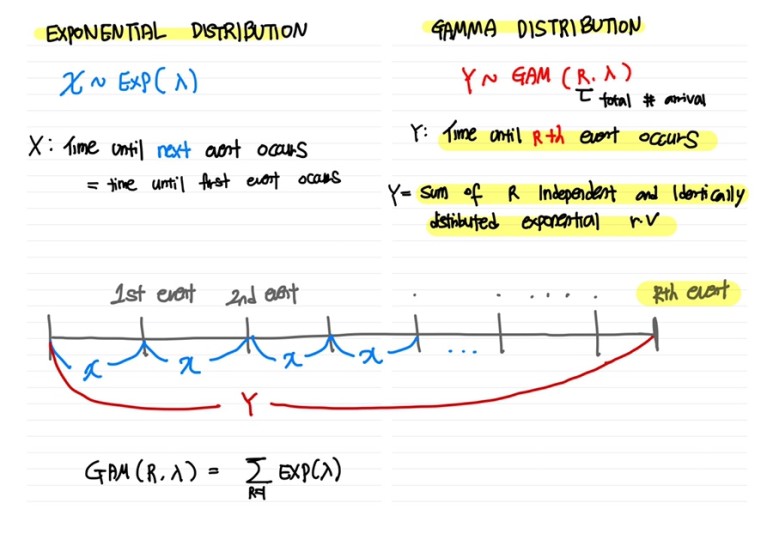 EXPONENTIAL DISTRIBUTION
X ~ EXP(λ)
X: Time until next event occurs
= time until first event occurs
GAMMA DISTRIBUTION
Y ~ GAM (R, λ)
total # arrival
Y: Time until Rth event occurs
Y = sum of R Independent and Identically
distributed exponential r.v
1st event 2nd event . . .... . Rth event
x x x x ...
Y
GAM(R, λ) = Σ EXP(λ)
R=1